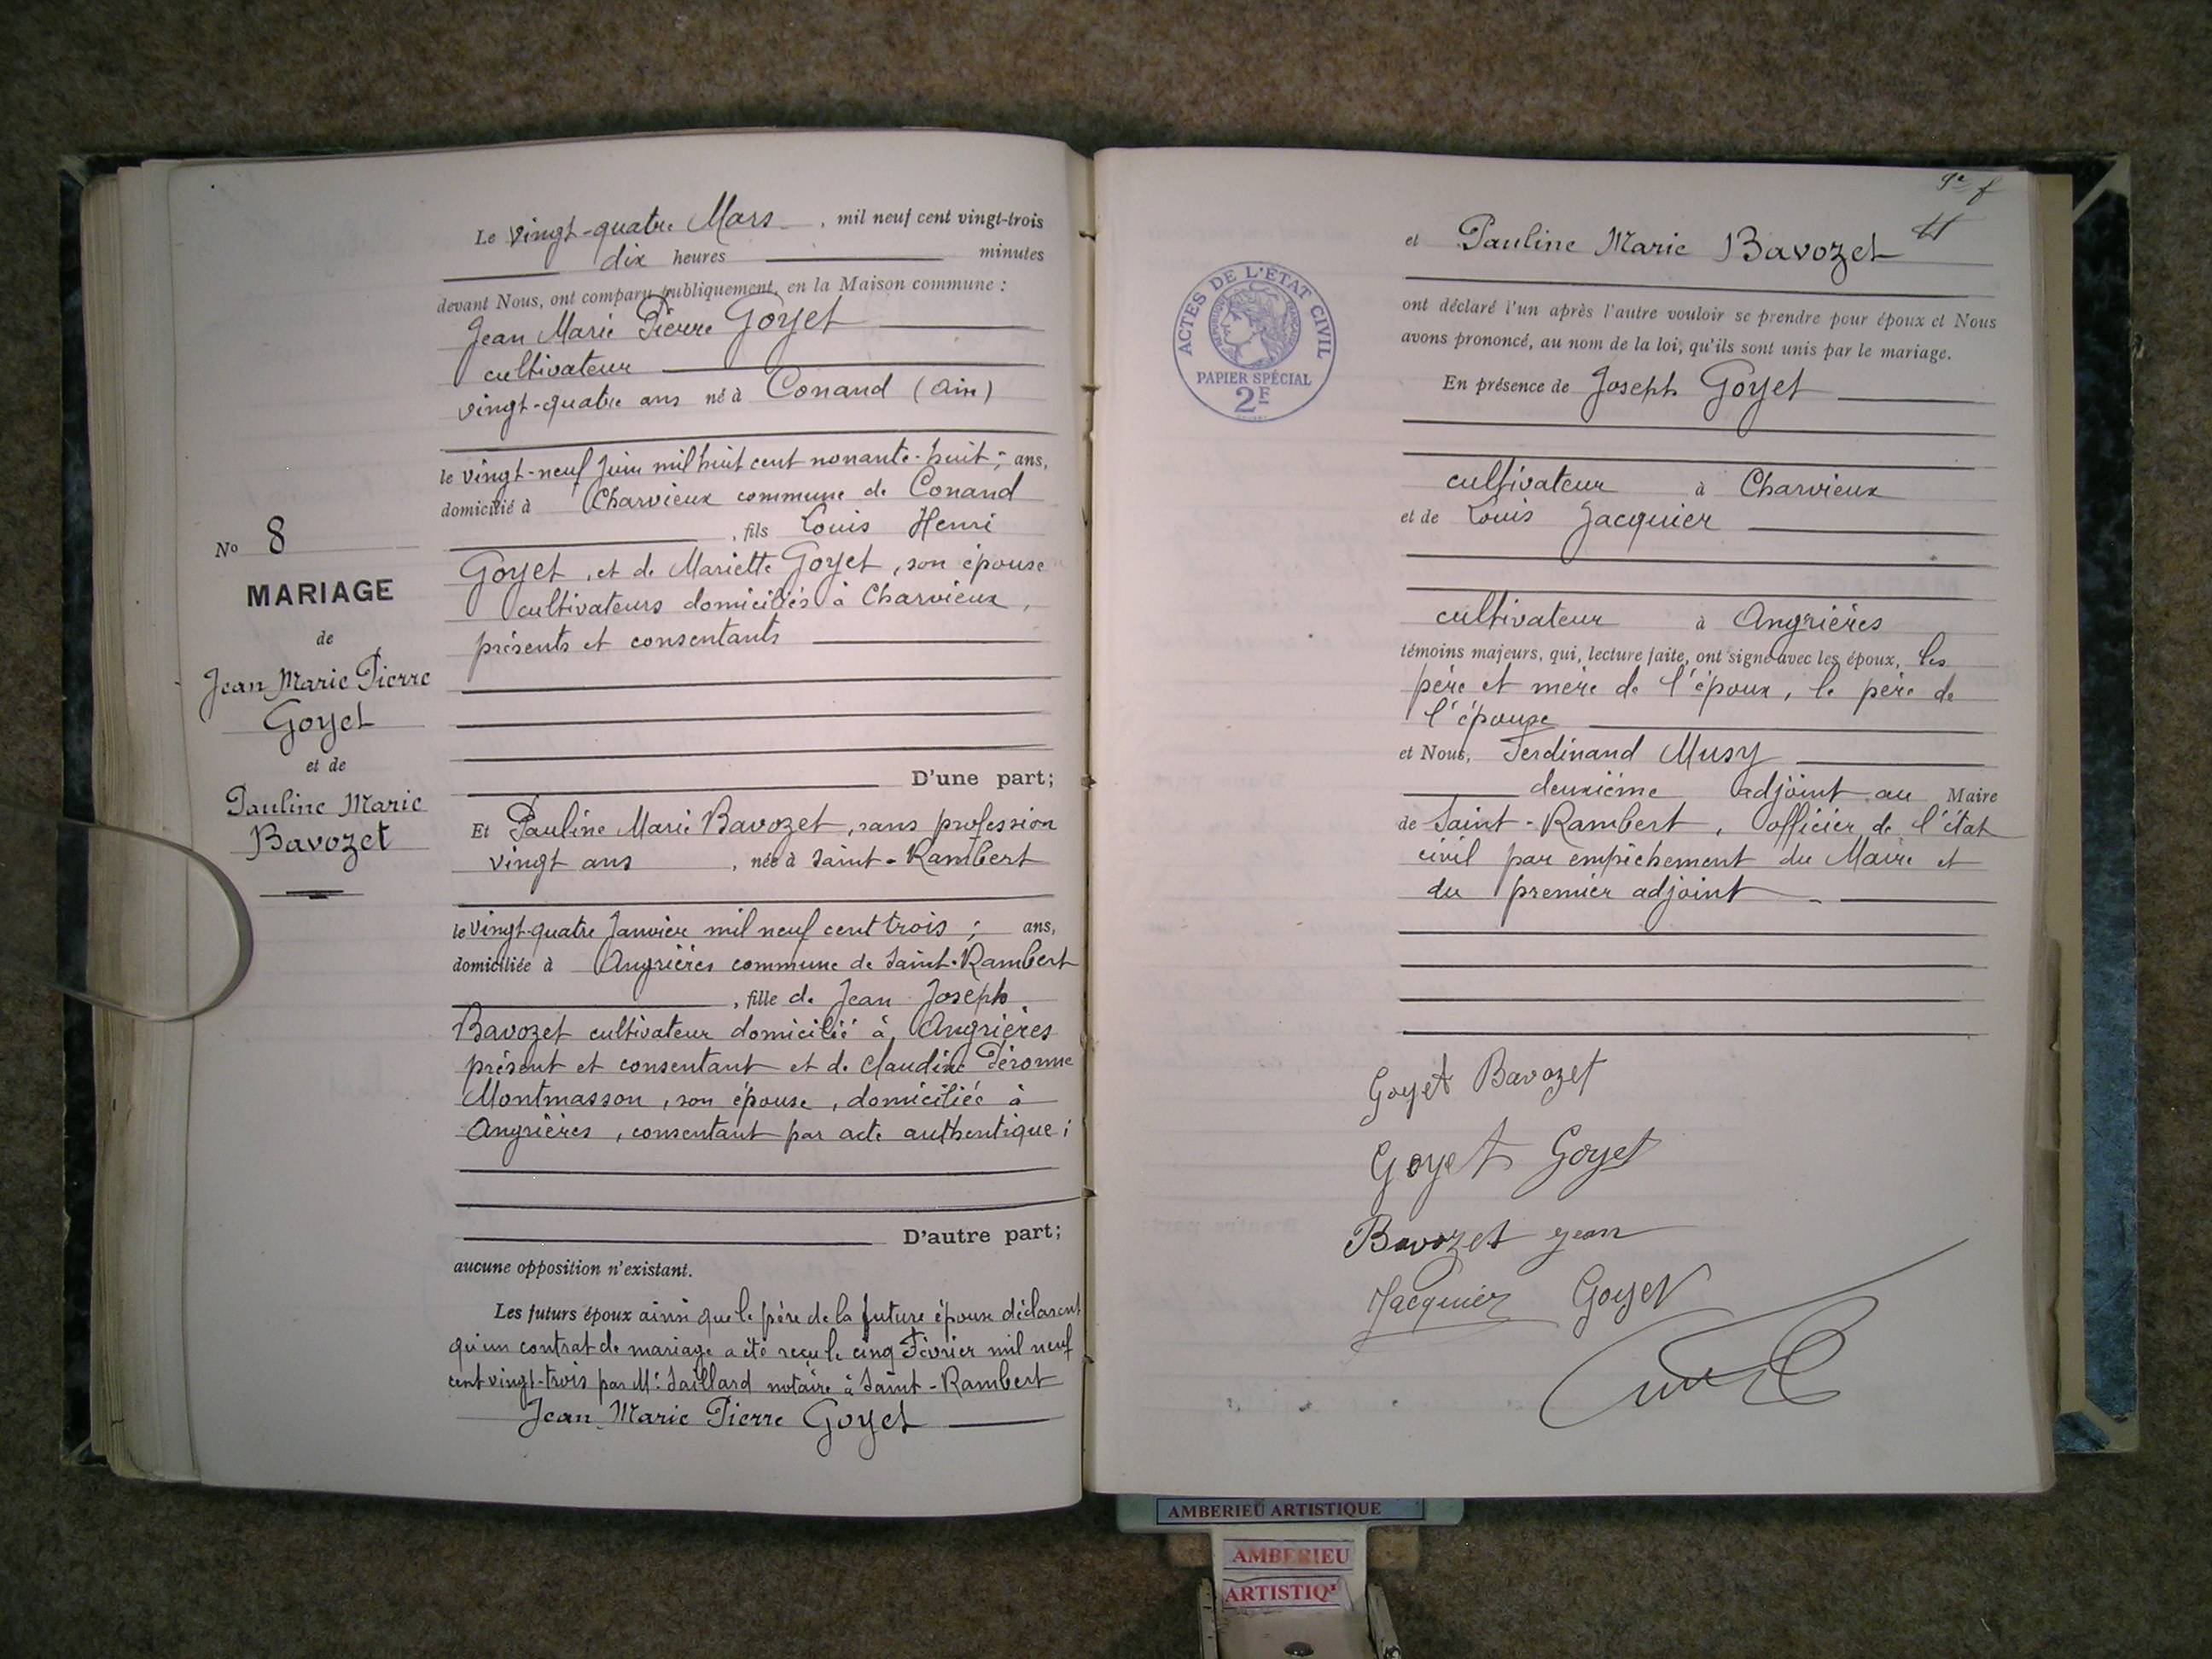 Le vingt-quatre Mars, mil neuf cent vingt-trois
dix heures minutes
devant Nous, ont comparu publiquement, en la Maison commune :
Jean Marie Pierre Goyet
cultivateur
vingt-quatre ans né à Conand (Ain)
le vingt-neuf Juin mil huit cent nonante-huit ; ans,
domicilié à Charvieux commune de Conand
, fils Louis Henri
Goyet, et de Mariette Goyet, son épouse
cultivateurs domiciliés à Charvieux,
présents et consentants
D'une part;
No 8
MARIAGE
de
Jean Marie Pierre
Goyet
et de
Pauline Marie
Bavozet
Et Pauline Marie Bavozet, sans profession
vingt ans, née à Saint-Rambert
le vingt-quatre Janvier mil neuf cent trois ; ans,
domiciliée à Angrières commune de Saint-Rambert
, fille de Jean Joseph
Bavozet cultivateur domicilié à Angrières
présent et consentant et de Claudine Péronne
Montmasson, son épouse, domiciliée à
Angrières, consentant par acte authentique ;
D'autre part;
aucune opposition n'existant.
Les futurs époux ainsi que le père de la future épouse déclarent
qu'un contrat de mariage a été reçu le cinq Février mil neuf
cent vingt-trois par Me Saillard notaire à Saint-Rambert
Jean Marie Pierre Goyet
9e f
et Pauline Marie Bavozet
ont déclaré l'un après l'autre vouloir se prendre pour époux et Nous
avons prononcé, au nom de la loi, qu'ils sont unis par le mariage.
En présence de Joseph Goyet
cultivateur à Charvieux
et de Louis Jacquier
cultivateur à Angrières
témoins majeurs, qui, lecture faite, ont signé avec les époux, les
père et mère de l'époux, le père de
l'épouse
et Nous, Ferdinand Musy
deuxième adjoint au Maire
de Saint-Rambert, officier de l'état
civil par empêchement du Maire et
du premier adjoint
Goyet Bavozet
Goyet Goyet
Bavozet jean
Jacquier Goyet
ACTES DE L'ÉTAT CIVIL
PAPIER SPÉCIAL
2F
AMBERIEU ARTISTIQUE
AMBERIEU
ARTISTIQ